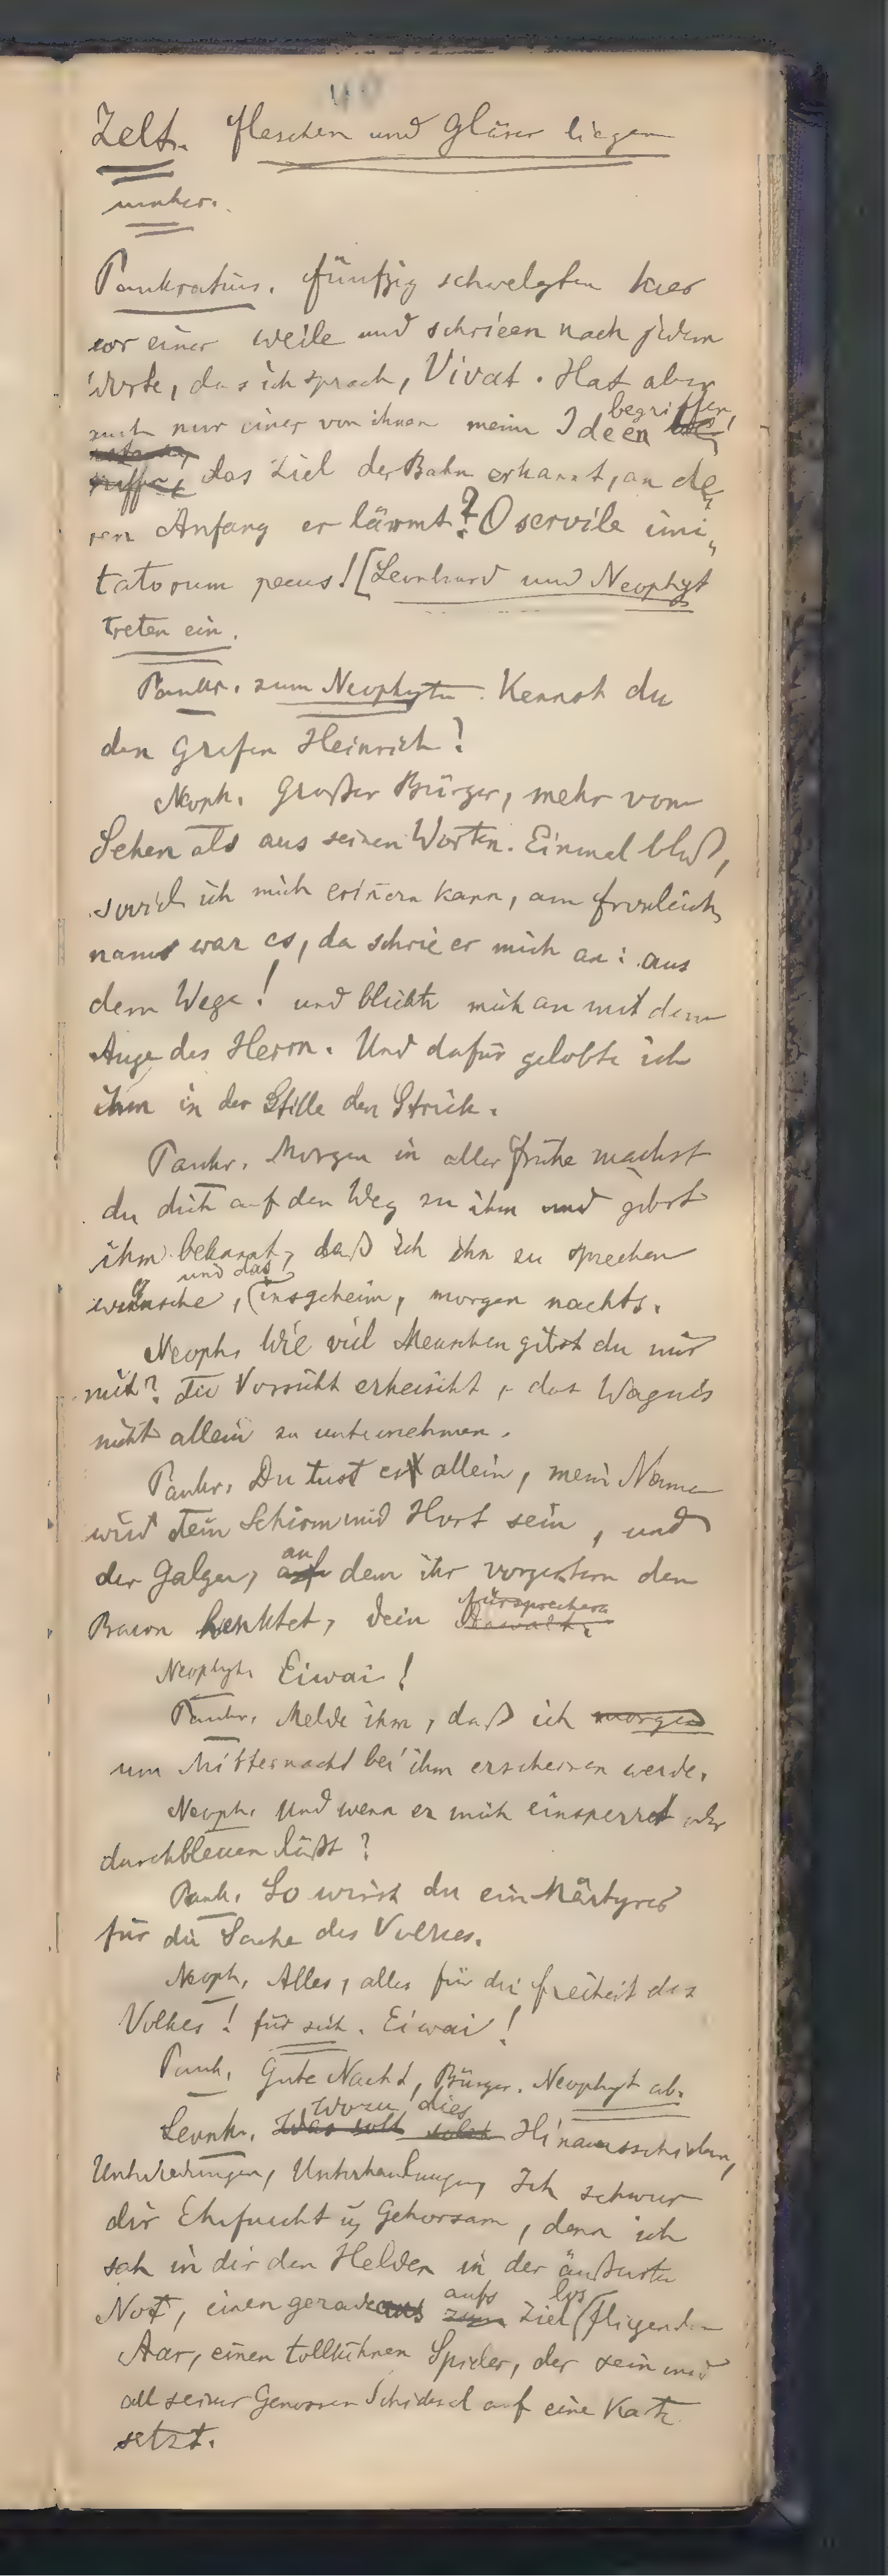 40
Zelt. Flaschen und Gläser liegen
umher.
Pankratius. Fünfzig schwelgten hier
vor einer Weile und schrieen nach jedem
Worte, das ich sprach, Vivat. Hat aber
auch nur einer von ihnen meine Ideen begriffen,
das Ziel der Bahn erkannt, an de
ren Anfang er lärmt? O servile imi
tatorum pecus! [Leonhard und Neophyt
treten ein.
Pankr. zum Neophyten. Kennst du
den Grafen Heinrich?
Neoph. Großer Bürger, mehr vom
Sehen als aus seinen Worten. Einmal bloß,
soviel ich mich erin̄ern kann, am Fronleich
nams war es, da schrie er mich an: aus
dem Wege! und blickte mich an mit dem
Auge des Herrn. Und dafür gelobte ich
ihm in der Stille den Strick.
Pankr. Morgen in aller Frühe machst
du dich auf den Weg zu ihm und gibst
ihm bekannt, daß ich ihn zu sprechen
wünsche, und das insgeheim, morgen nachts.
Neoph. Wie viel Menschen gibst du mir
mit? Die Vorsicht erheischt, das Wagnis
nicht allein zu unternehmen.
Pankr. Du tust es allein, mein Name
wird dein Schirm und Hort sein, und
der Galgen, an dem ihr vorgestern den
Baron henktet, dein Fürsprecher.
Neophyt. Eiwai!
Pankr. Melde ihm, daß ich morgen
um Mitternacht bei ihm erscheinen werde.
Neoph. Und wenn er mich einsperret oder
durchbleuen läßt?
Pank. So wirst du ein Märtyrer
für die Sache des Volkes.
Neoph. Alles, alles für die Freiheit des
Volkes! für sich. Eiwai!
Pank. Gute Nacht, Bürger. Neophyt ab.
Leonh. Wozu dies Hinausschieben,
Unterhandlungen, Ich schwur
dir Ehrfurcht u. Gehorsam, denn ich
sah in dir den Helden in der äußersten
Not, einen gerade aufs Ziel los fliegenden
Aar, einen tollkühnen Spieler, der sein und
all seiner Genossen Schicksal auf eine Karte
setzt.